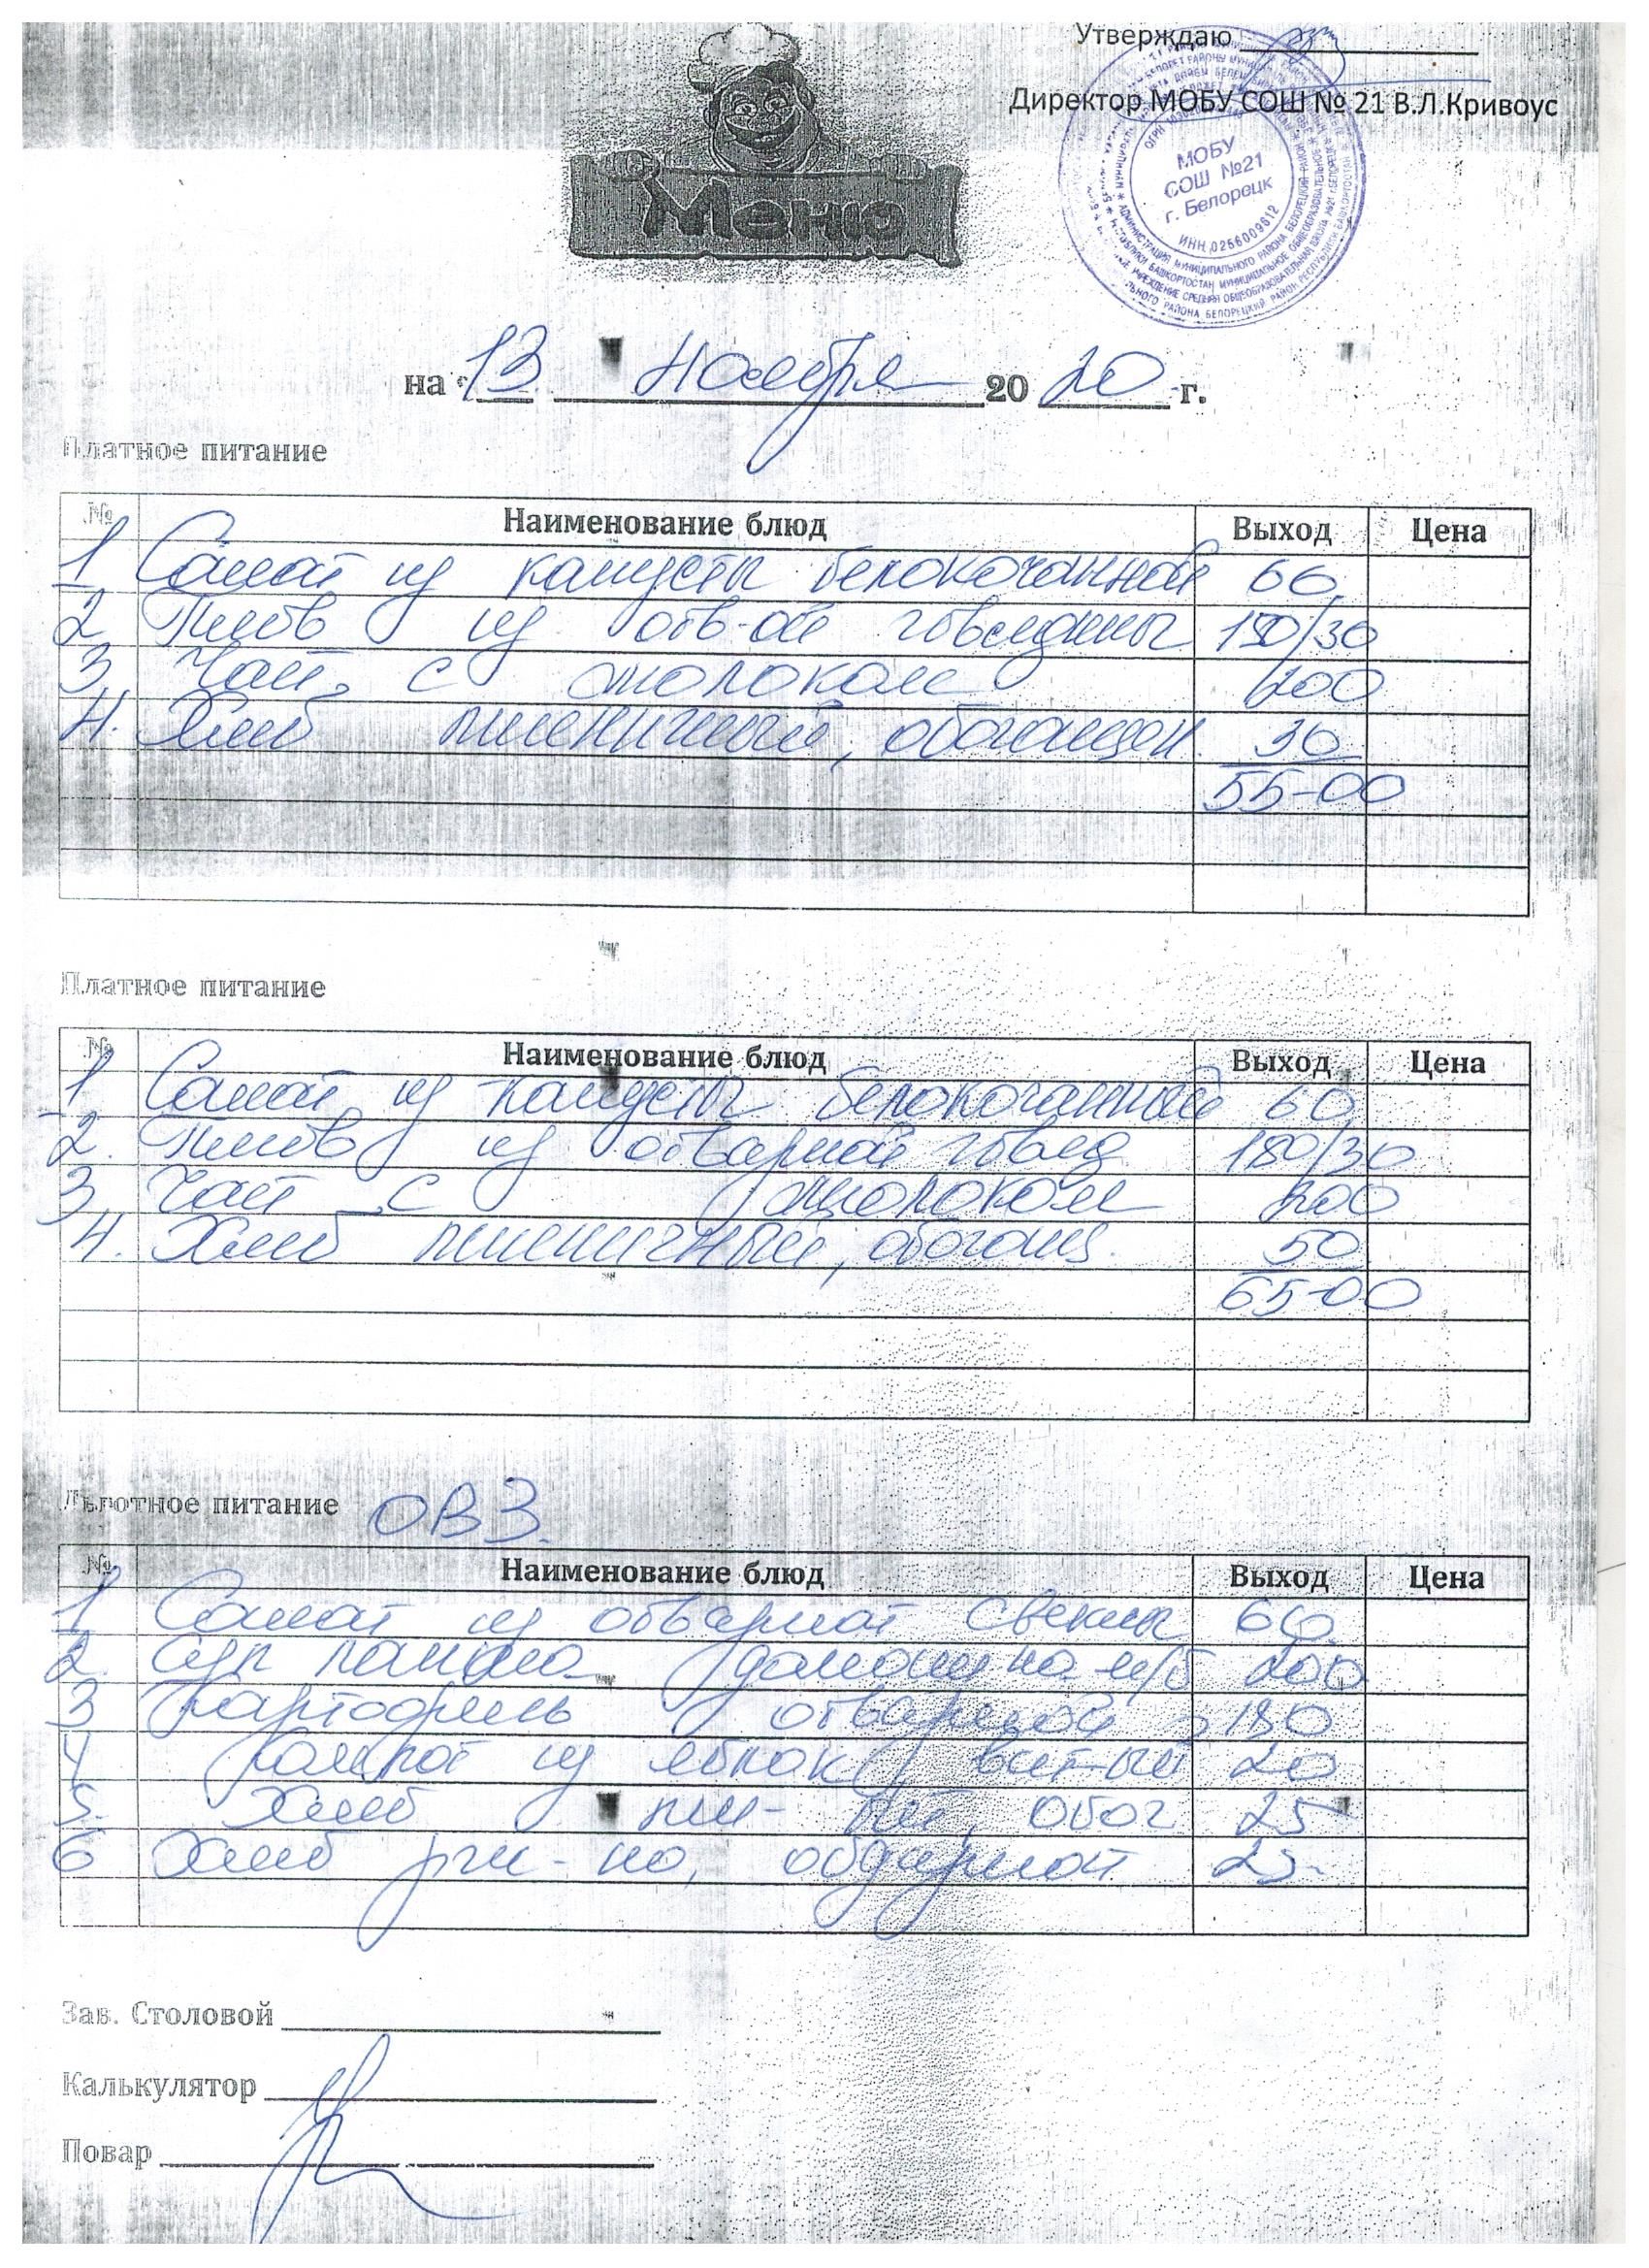 Утверждаю
Директор МОБУ СОШ № 21 В.Л.Кривоус
МОБУ
СОШ №21
г. Белорецк
ИНН 0256009612
Меню
на 13 ноября 2020 г.
Платное питание
№ Наименование блюд Выход Цена
1 Салат из капусты белокочанной 60
2 Плов из отв-ой говядины 180/30
3 Чай с молоком 200
4. Хлеб пшеничный, обогащен. 30
55-00
Платное питание
№ Наименование блюд Выход Цена
1 Салат из капусты белокочанной 60
2. Плов из отварной говяд 180/30
3 Чай с молоком 200
4. Хлеб пшеничный, обогащ. 50
65-00
Льготное питание ОВЗ.
№ Наименование блюд Выход Цена
1 Салат из отварной свеклы 60
2. Суп лапша домашн на м/б 200
3 Картофель отварной 180
4 Компот из яблок, вит-ый 20
5. Хлеб пш-ый, обог 25
6 Хлеб рж-но, обдирной 25
Зав. Столовой
Калькулятор
Повар